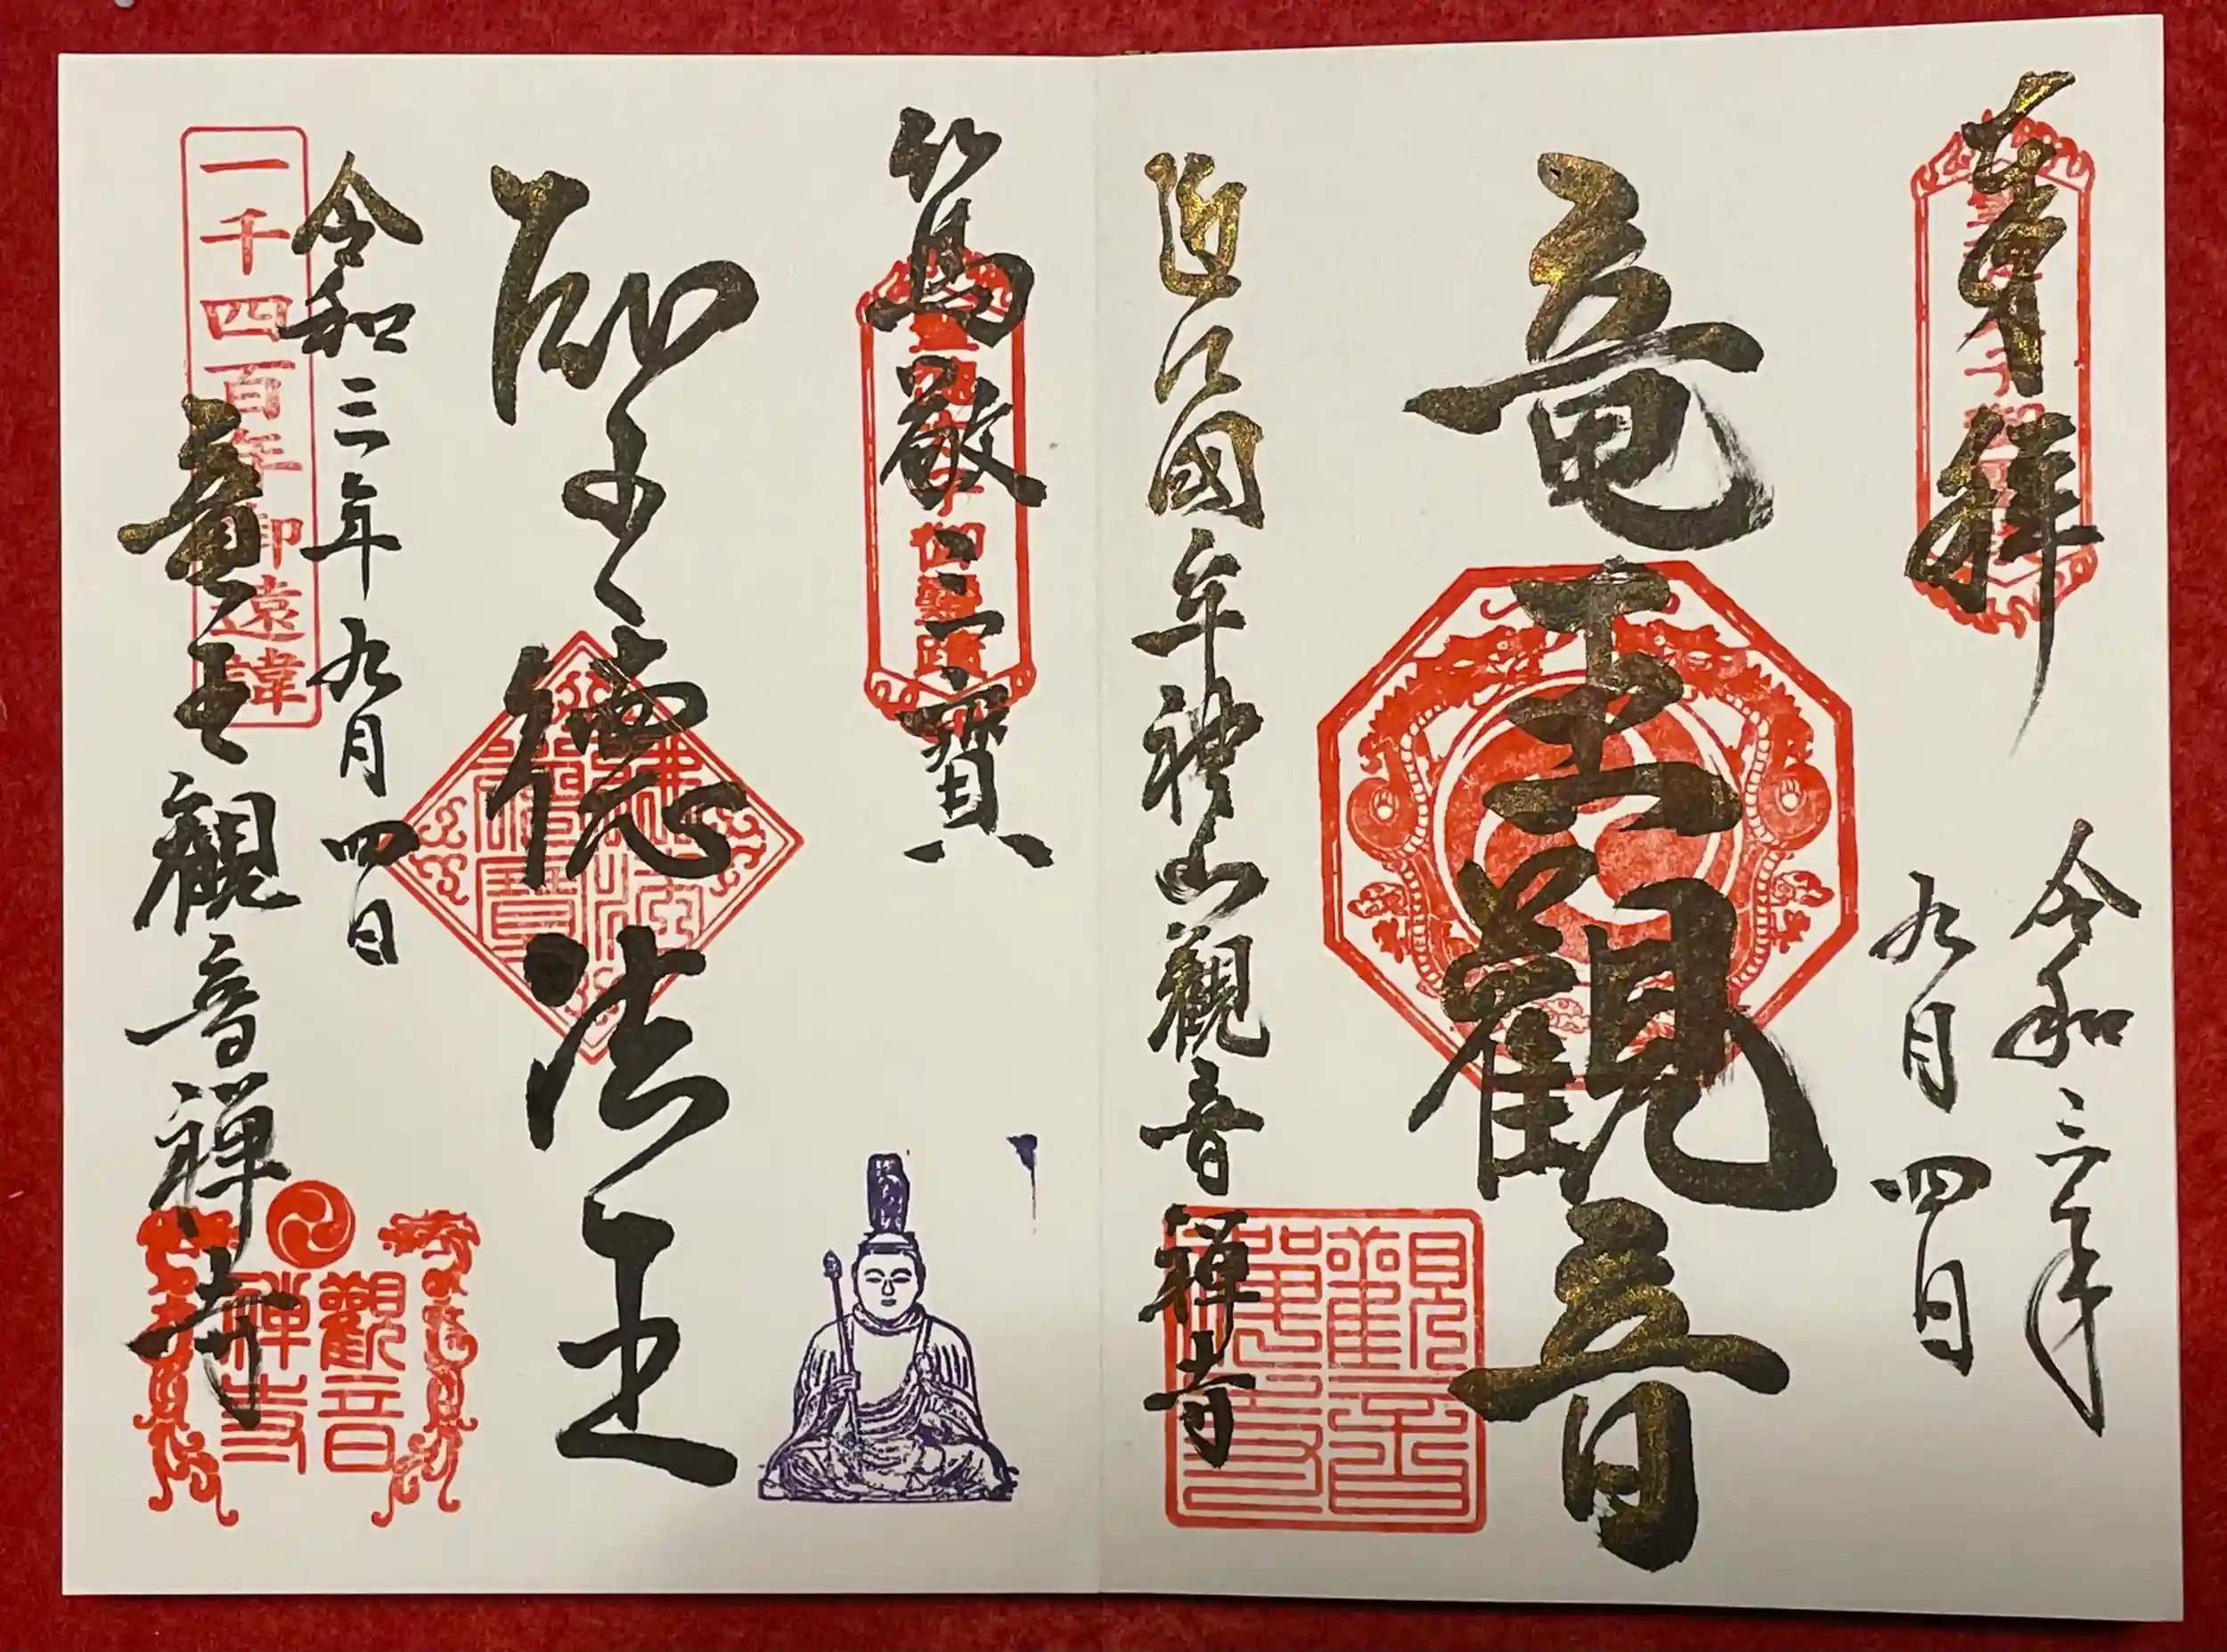 奉拝
令和三年
九月四日
竜王観音
近江國年禅山観音禅寺
觀音
篤敬三寳
聖徳法王
令和三年九月四日
一千四百年御遠諱
竜王観音禅寺
觀音
禅寺